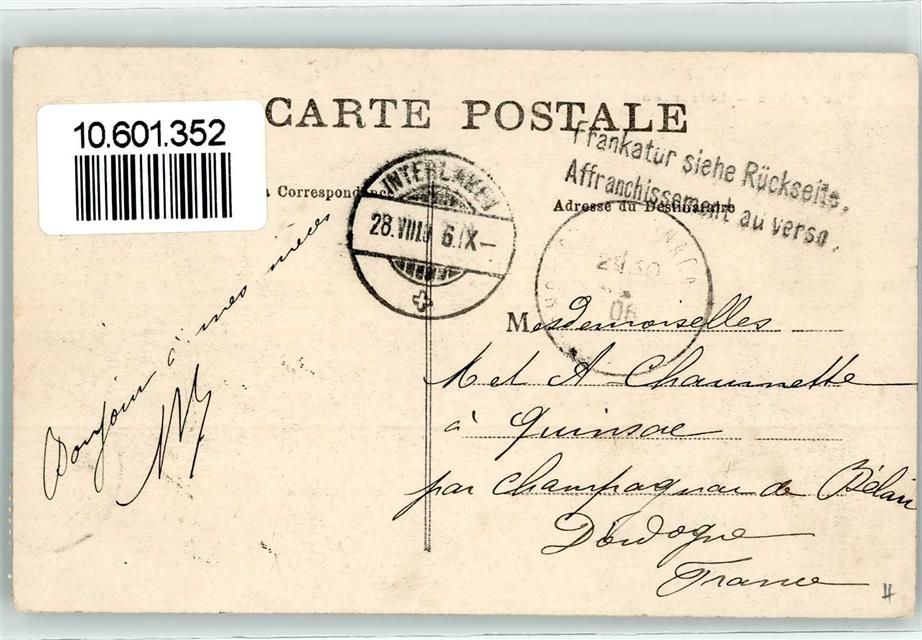 CARTE POSTALE
10.601.352
Correspondance
Frankatur siehe Rückseite.
Affranchissement au verso.
Adresse du Destinataire
INTERLAKEN
28.VIII.
6.IX-
06
Bonjour à mes nieces
Mesdemoiselles
M et A Chaumette
à Quinsac
par Champagnac de Bélair
Dordogne
France